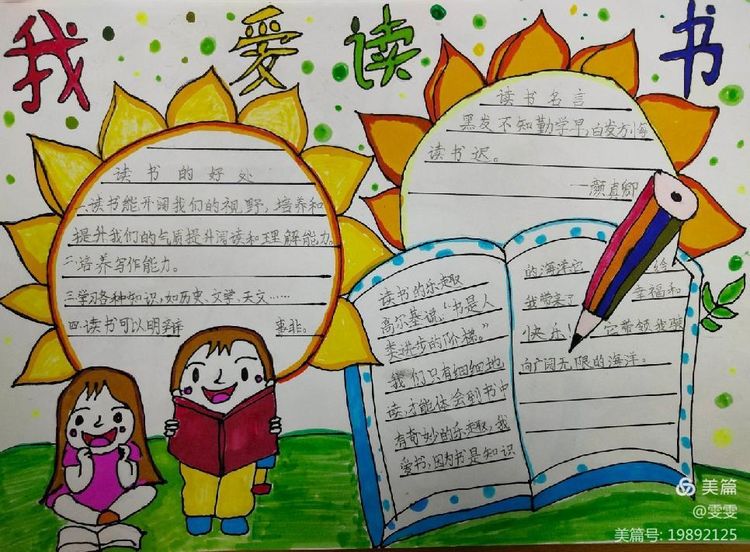 我爱读书
读书的好处
一.读书能开阔我们的视野,培养和
提升我们的气质提升阅读和理解能力。
二.培养写作能力。
三学习各种知识,如历史、文学、天文……
四.读书可以明辩 事非。
读书名言
黑发不知勤学早,白发方悔
读书迟。
——颜真卿
读书的乐趣
高尔基说,"书是人
类进步的阶梯。"
我们只有细细地
读,才能体会到书中
有奇妙的乐趣,我
爱书,因为书是知识
的海洋它 给
我带来了 幸福和
快乐! 它带领我驶
向广阔无限的海洋。
美篇
@雯雯
美篇号: 19892125